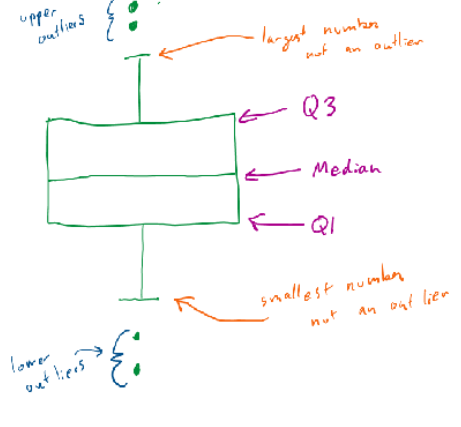 upper
outliers
largest number
not an outlier
Q3
Median
Q1
smallest number
not an outlier
lower
outliers